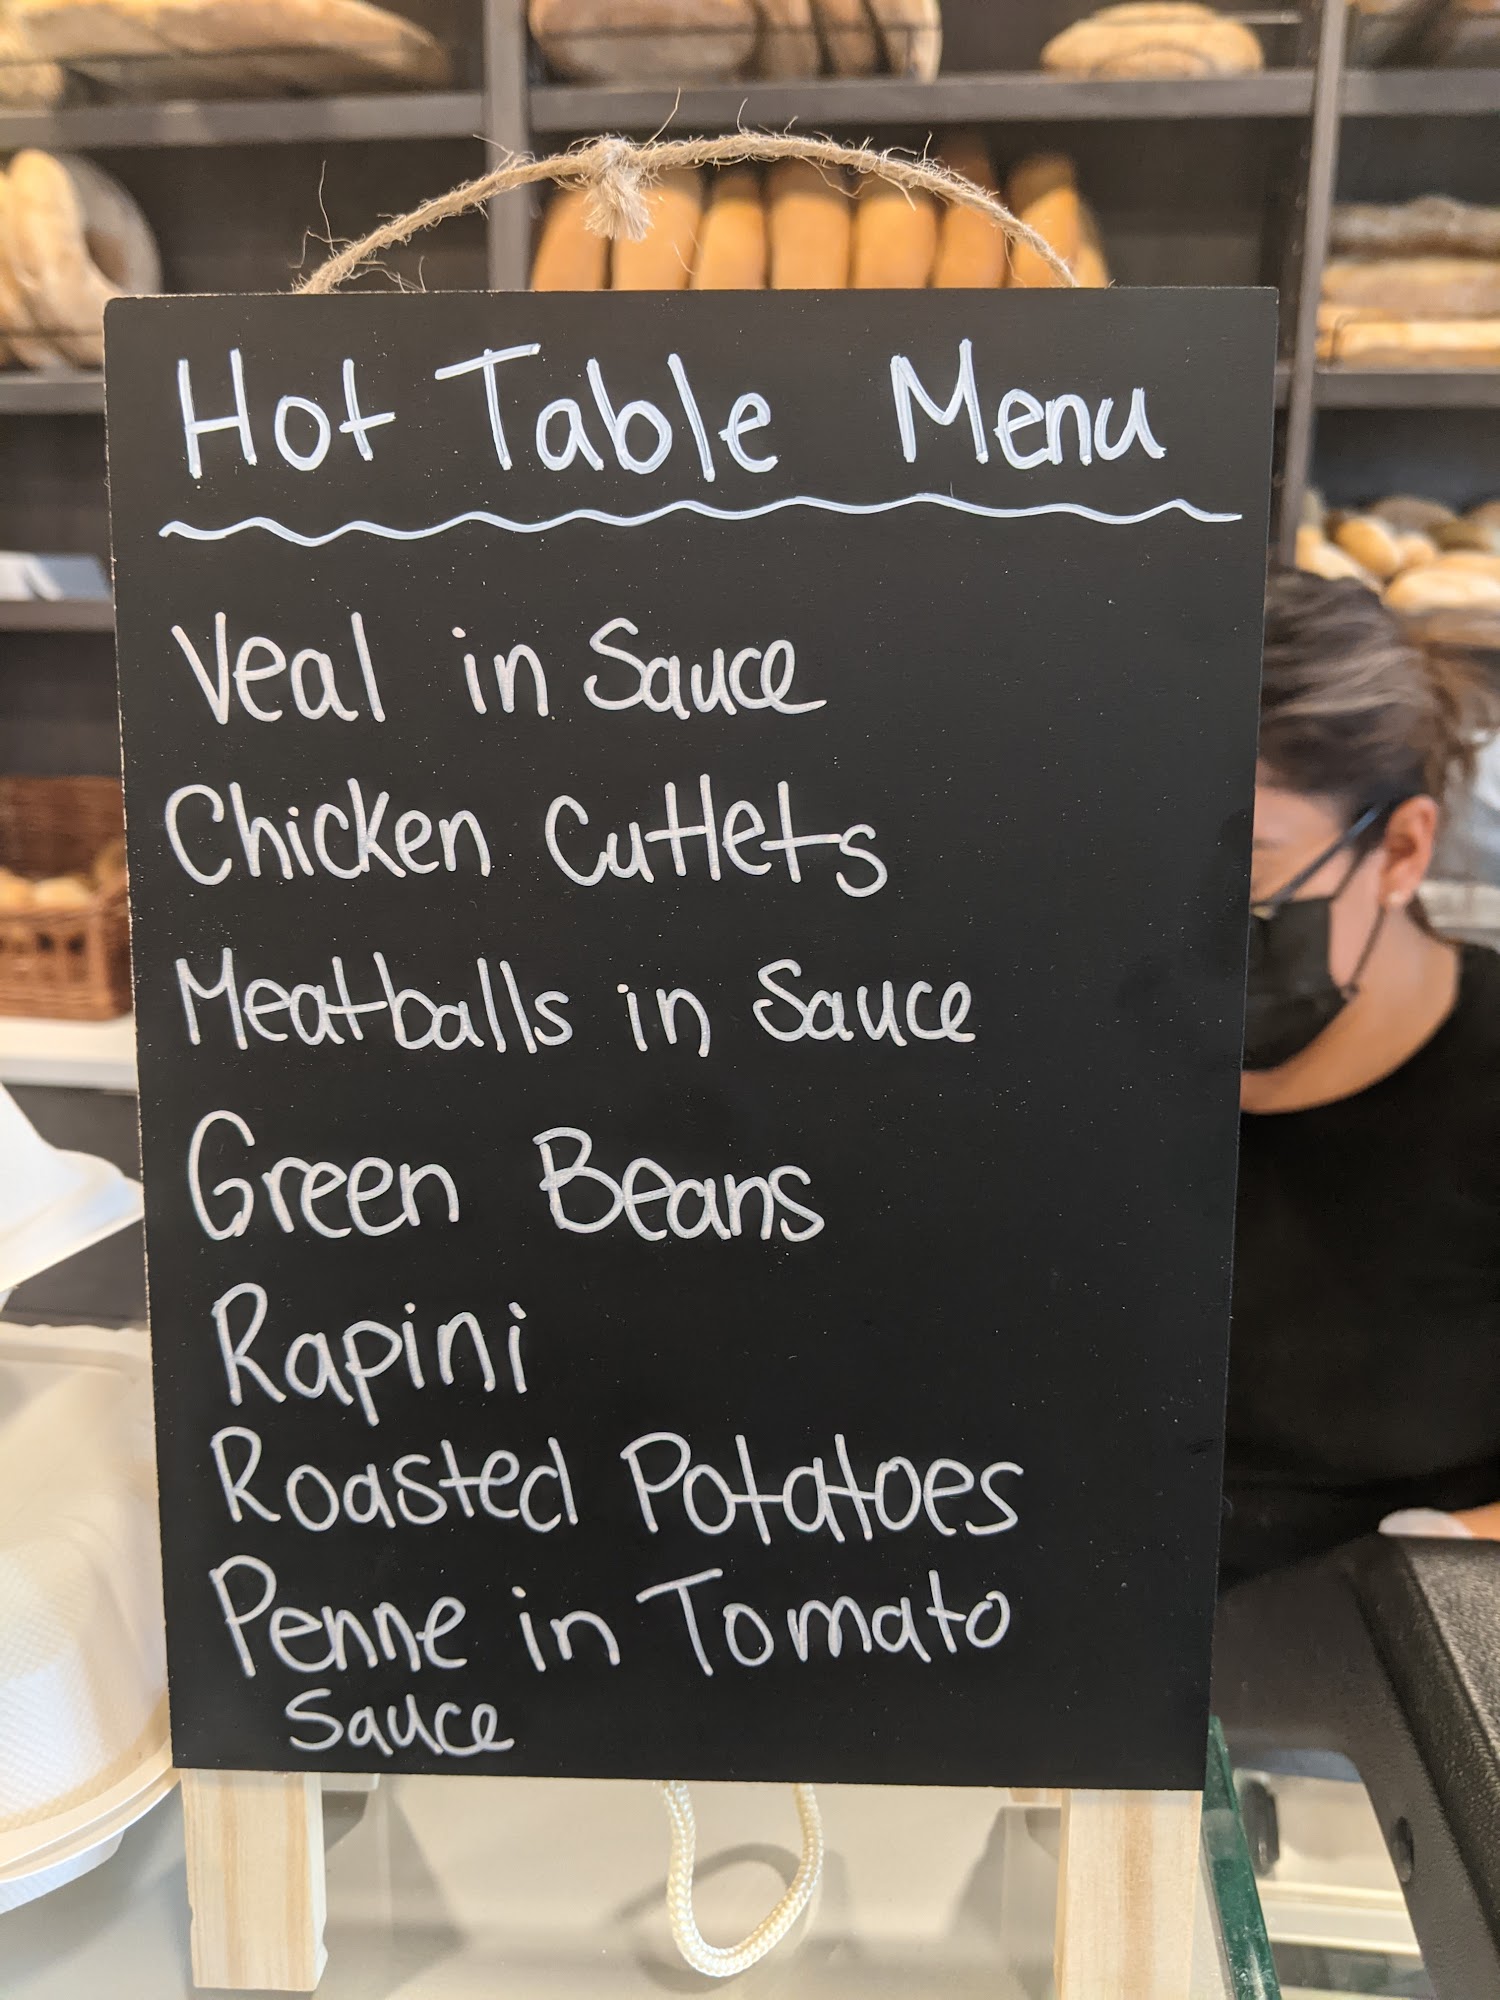 Hot Table Menu
Veal in Sauce
Chicken Cutlets
Meatballs in Sauce
Green Beans
Rapini
Roasted Potatoes
Penne in Tomato
Sauce